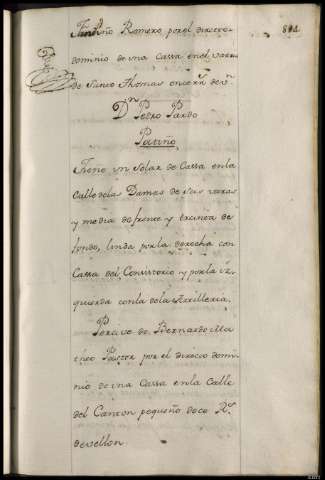 Romero por el directo
dominio de una Cassa en el varrio
de Santo Thomas
Dn Pedro Pardo
Patiño
Tiene un solar de Cassa en la
Calle de las Damas de seis varas
y media de frente y treinta de
fondo, linda por la derecha con
Cassa del Consistorio y por la iz
quierda con la de la Artilleria.
Percive de Bernardo Ma
theo Pastor por el directo domi
nio de una Cassa en la Calle
del Canton pequeño doce Rs
de vellon